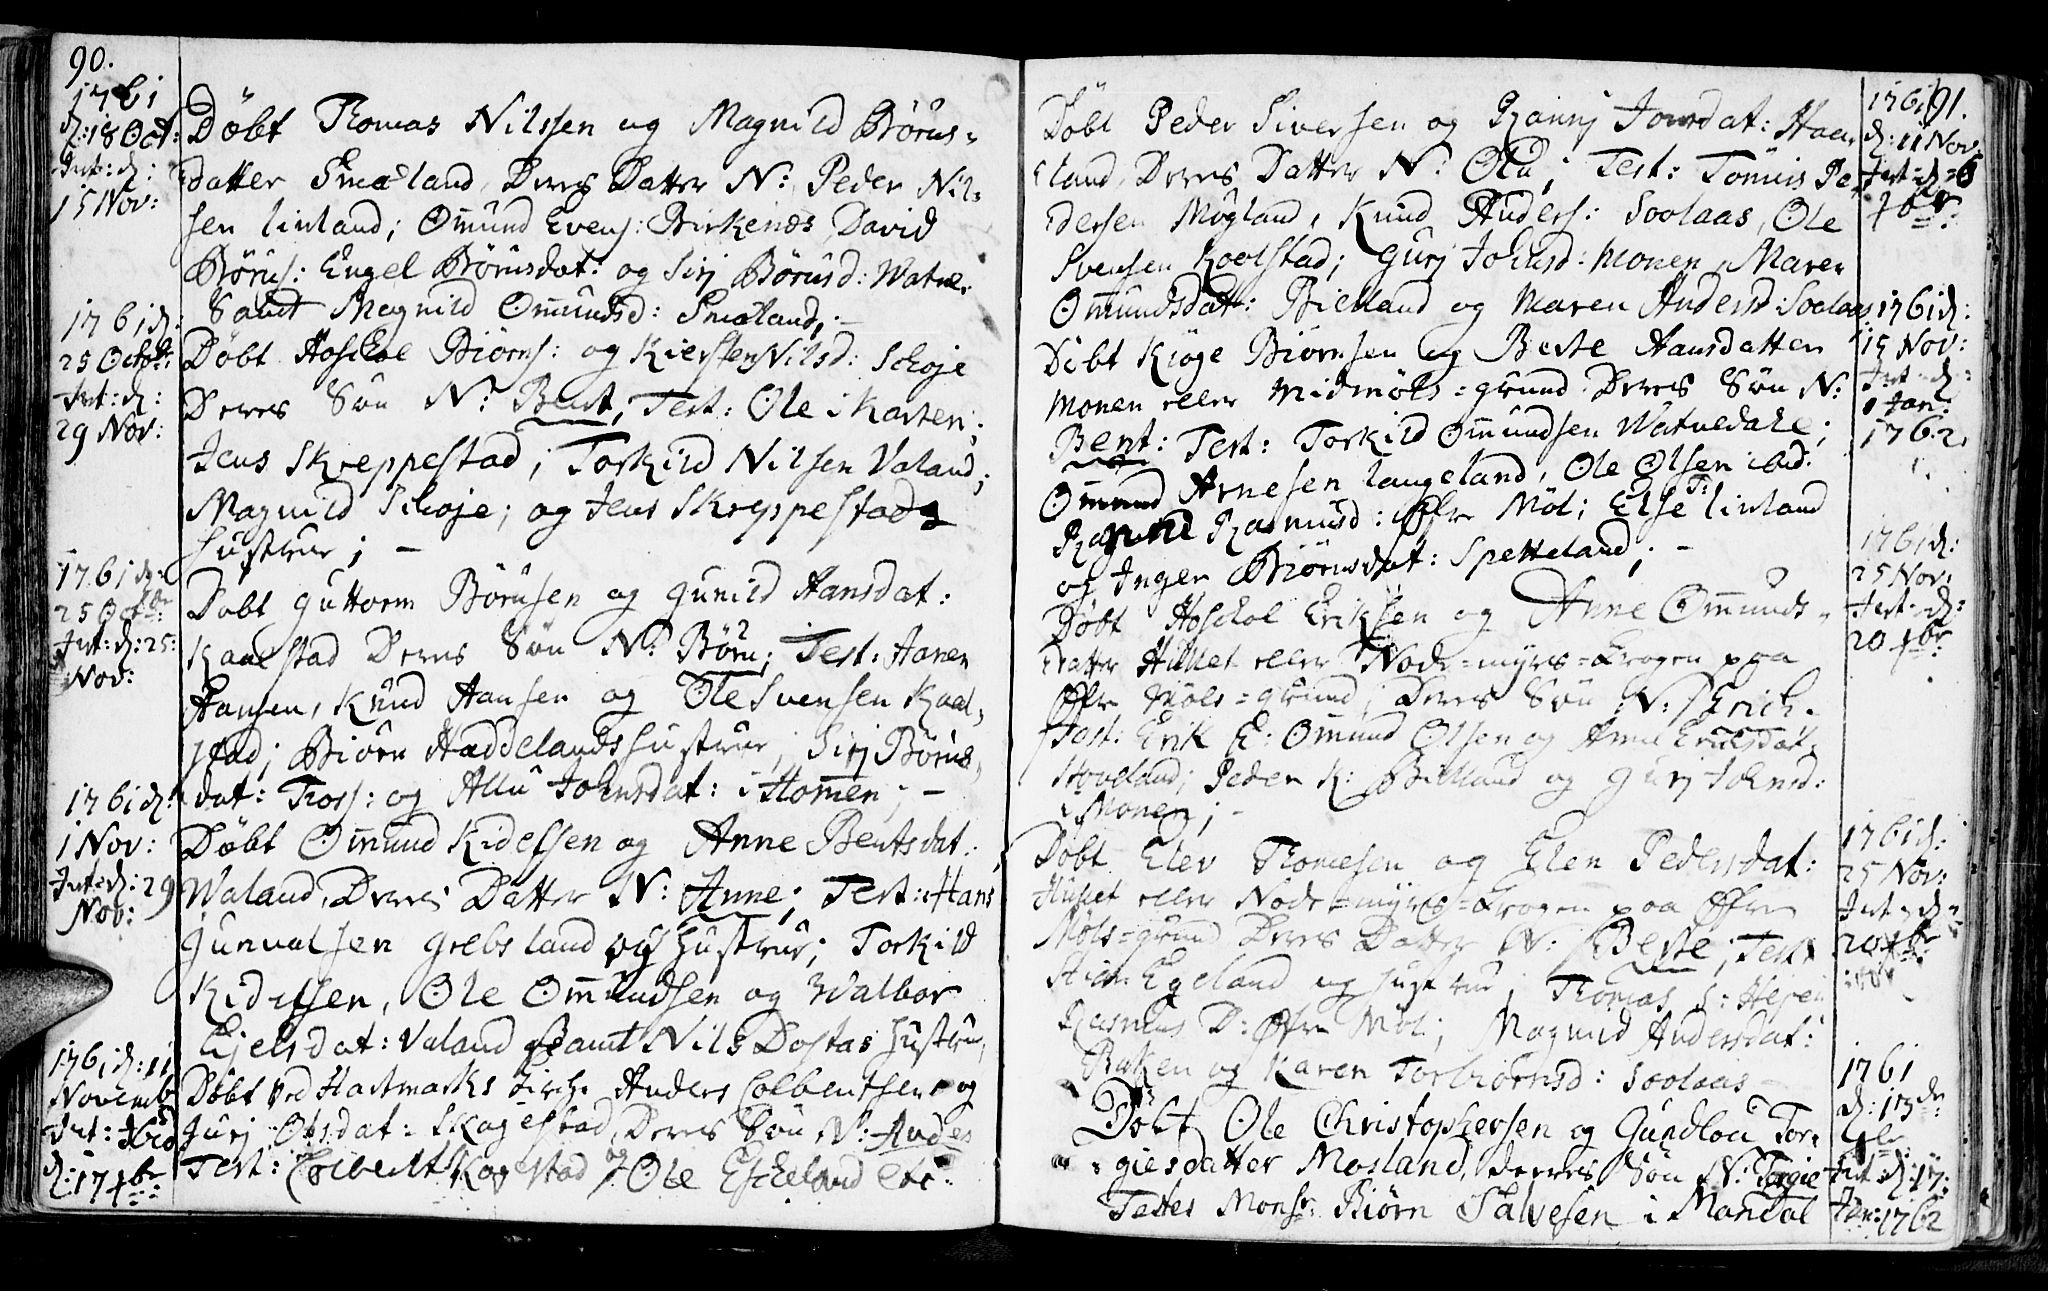 90.
1761
d: 18 Oct:
Int: d:
15 Nov:
Döbt Thomas Nilssen og Magnild Börus-
datter Smæland, Deres Datter N: Peder Nil-
sen linland; Omund Evens: Birkenæs, David
Börus: Engel Börusdat: og Sirj Börusd: Watne-
Samt Magnild Omundsd: Smæland; -
1761 d:
25 Octob:
Int: d:
29 Nov:
Döbt Aschol Biörns: og Kiersten Nilsd: Schoje
Deres Sön N: Bent; Test: Ole i Karten;
Jens Skreppestad; Torkild Nilsen Valand;
Magnild Schoje; og Jens Skreppestads
Hustrue; -
1761 d:
25 Octbr:
Int: d: 25:
Nov:
Döbt Guttorm Börusen og Gunild Hansdat:
Kaalstad Deres Sön N: Böru; Test: Hanen
Hansen, Knud Hansen og Ole Svensen Kaal-
stad; Biörn Haddelands Hustrue, Sirj Börus-
dat: Foss: og Allu Johnsdat: i Homen; -
1761 d:
1 Nov:
Int: d: 29
Nov:
Döbt Omund Kidelsen og Anne Bentsdat:
Waland, Deres Datter N: Anne; Test: Hans
Gunvalsen Grebsland og Hustrue; Torkild
Kidelsen, Ole Omundsen og Walbor
Kjelsdat: Valand Samt Nils Dostas Hustru,
1761 d: 11
Novemb
Int:
d: 17 br:
Döbt ved Hartmarks Kirche Anders Colbentsen og
Gurj Olsdat: Skagestad, Deres Sön N: Andes
Test: Colbent Kogstad og Ole Escheland etc.
1761 91.
d: 11 Nov
Int: d: 6
br:
Döbt Peder Siversen og Ranni Jonsdat: Haa-
land, Deres Datter N: Ola; Test: Tomis Pe-
dersen Mögland, Knud Anders: Soolaas, Ole
Svensen Koolstad; Gurj Johnsd: Monen, Maren
Omundsdatt: Bielland og Maren Andersd: Soolaas
1761 d:
15 Nov:
Int: d:
1 Jan:
1762
Döbt Kiöge Biörnsen og Berte Hansdatter
Monen eller Midmöls=grund Deres Sön N:
Bent: Test: Torkild Omundsen Watnedale;
Omund Arnesen Langeland, Ole Olsen ibid:
Ragnild Rasmusd: Öfre Möl; Else T: linland
og Inger Biörnsdat: Spetteland; -
1761 d:
25 Nov:
Int: d:
20 br:
Döbt Aschol Eriksen og Anne Omunds-
datter Hillet eller Node=myrs=Krogen paa
Öfre Möls=grund; Deres Sön N: Erich.
Test: Erik E: Omund Olsen og Anne Eriksdat:
Hoveland; Peder K: Bielland og Gurj Johnsd:
i Monen; -
1761 d:
25 Nov:
Int: d:
20 br:
Döbt Elev Thomesen og Elen Pedersdat:
Huset eller Node=myrs=Krogen paa Öfre
Möls=grund Deres Datter N: Berte; Test
Egeland og Hustrue; Thomas S:
Rasmus D: Öfre Möl; Magnild Andersdat:
Bakken og Karen Torbiörnsd: Soolaas
1761
d: 13 de
Int: d: 17:
Jan: 1762
Döbt Ole Christophersen og Gundlou Tor-
giesdatter Mosland, derres Sön N: Torgie
Testes Monsr: Biörn Salvesen i Mandal